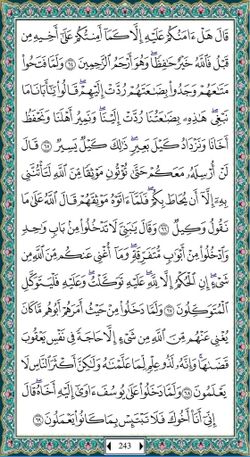 قَالَ هَلْ ءَامَنُكُمْ عَلَيْهِ إِلَّا كَمَآ أَمِنتُكُمْ عَلَىٰٓ أَخِيهِ مِن
قَبْلُ فَٱللَّهُ خَيْرٌ حَٰفِظًا ۖ وَهُوَ أَرْحَمُ ٱلرَّٰحِمِينَ ٦٤ وَلَمَّا فَتَحُوا۟
مَتَٰعَهُمْ وَجَدُوا۟ بِضَٰعَتَهُمْ رُدَّتْ إِلَيْهِمْ ۖ قَالُوا۟ يَٰٓأَبَانَا مَا
نَبْغِى ۖ هَٰذِهِۦ بِضَٰعَتُنَا رُدَّتْ إِلَيْنَا ۖ وَنَمِيرُ أَهْلَنَا وَنَحْفَظُ
أَخَانَا وَنَزْدَادُ كَيْلَ بَعِيرٍ ۖ ذَٰلِكَ كَيْلٌ يَسِيرٌ ٦٥ قَالَ
لَنْ أُرْسِلَهُۥ مَعَكُمْ حَتَّىٰ تُؤْتُونِ مَوْثِقًا مِّنَ ٱللَّهِ لَتَأْتُنَّنِى
بِهِۦٓ إِلَّآ أَن يُحَاطَ بِكُمْ ۖ فَلَمَّآ ءَاتَوْهُ مَوْثِقَهُمْ قَالَ ٱللَّهُ عَلَىٰ مَا
نَقُولُ وَكِيلٌ ٦٦ وَقَالَ يَٰبَنِىَّ لَا تَدْخُلُوا۟ مِنۢ بَابٍ وَٰحِدٍ
وَٱدْخُلُوا۟ مِنْ أَبْوَٰبٍ مُّتَفَرِّقَةٍ ۖ وَمَآ أُغْنِى عَنكُم مِّنَ ٱللَّهِ مِن
شَىْءٍ ۖ إِنِ ٱلْحُكْمُ إِلَّا لِلَّهِ ۖ عَلَيْهِ تَوَكَّلْتُ ۖ وَعَلَيْهِ فَلْيَتَوَكَّلِ
ٱلْمُتَوَكِّلُونَ ٦٧ وَلَمَّا دَخَلُوا۟ مِنْ حَيْثُ أَمَرَهُمْ أَبُوهُم مَّا كَانَ
يُغْنِى عَنْهُم مِّنَ ٱللَّهِ مِن شَىْءٍ إِلَّا حَاجَةً فِى نَفْسِ يَعْقُوبَ
قَضَىٰهَا ۚ وَإِنَّهُۥ لَذُو عِلْمٍ لِّمَا عَلَّمْنَٰهُ وَلَٰكِنَّ أَكْثَرَ ٱلنَّاسِ لَا
يَعْلَمُونَ ٦٨ وَلَمَّا دَخَلُوا۟ عَلَىٰ يُوسُفَ ءَاوَىٰٓ إِلَيْهِ أَخَاهُ ۖ قَالَ
إِنِّىٓ أَنَا۠ أَخُوكَ فَلَا تَبْتَئِسْ بِمَا كَانُوا۟ يَعْمَلُونَ ٦٩
243